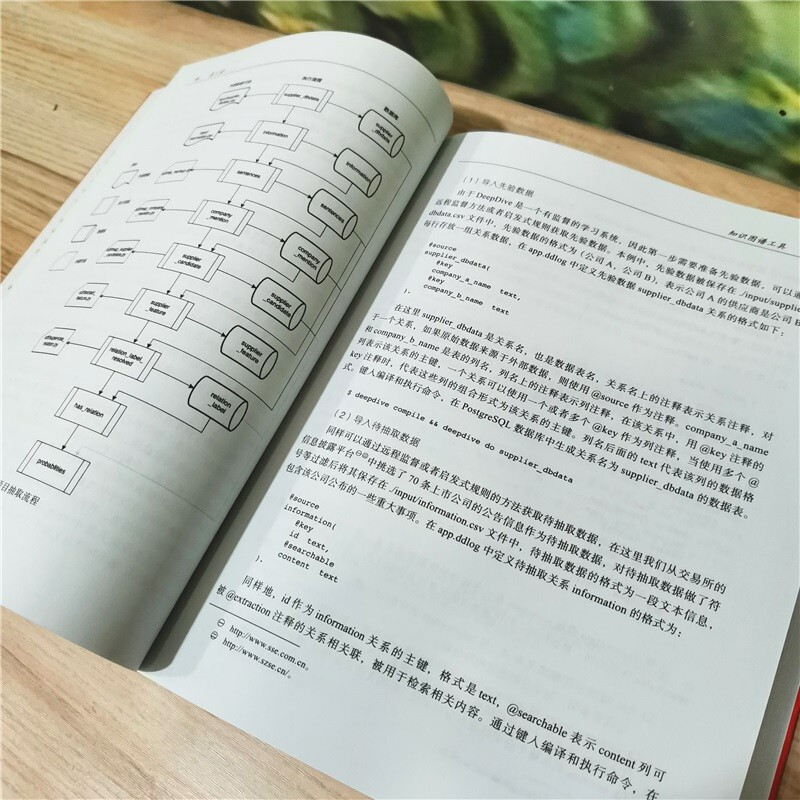 执行流程
数据库
supplier_dbdata
supplier
_dbdata
information
information
sentences
sentences
company
_mention
company
_mention
supplier
_candidate
supplier
_candidate
supplier
_feature
supplier
_feature
relation_label_
resolved
relation
_label
has_relation
probabilities
目抽取流程
知识图谱工具
(1)导入先验数据
由于DeepDive是一个有监督的学习系统，因此第一步需要准备先验数据，可以通
远程监督方法或者启发式规则获取先验数据。本例中，先验数据被保存在./input/supplie
dbdata.csv文件中，先验数据的格式为(公司A，公司B)，表示公司A的供应商是公司B
每行存放一组关系数据，在app.ddlog中定义先验数据supplier_dbdata关系的格式如下：
@source
supplier_dbdata(
@key
company_a_name text,
@key
company_b_name text
).
在这里supplier_dbdata是关系名，也是数据表名，关系名上的注释表示关系注释，对
于一个关系，如果原始数据来源于外部数据，则使用@source作为注释。company_a_name
和company_b_name是表的列名，列名上的注释表示列注释，在该关系中，用@key注释的
列表示该关系的主键，一个关系可以使用一个或者多个@key作为列注释，当使用多个@
key注释时，代表这些列的组合形式为该关系的主键。列名后面的text代表该列的数据格
式。键入编译和执行命令，在PostgreSQL数据库中生成关系名为supplier_dbdata的数据表。
$ deepdive compile && deepdive do supplier_dbdata
(2)导入待抽取数据
同样可以通过远程监督或者启发式规则的方法获取待抽取数据，在这里我们从交易所的
信息披露平台㊀㊁中挑选了70条上市公司的公告信息作为待抽取数据，对待抽取数据做了符
号等过滤后将其保存在./input/information.csv文件中，待抽取数据的格式为一段文本信息，
包含该公司公布的一些重大事项。在app.ddlog中定义待抽取关系information的格式为：
@source
information(
@key
id text,
@searchable
content text
).
同样地，id作为information关系的主键，格式是text，@searchable表示content列可
被@extraction注释的关系相关联，被用于检索相关内容。通过键入编译和执行命令，在
㊀ http://www.sse.com.cn。
㊁ http://www.szse.cn/。